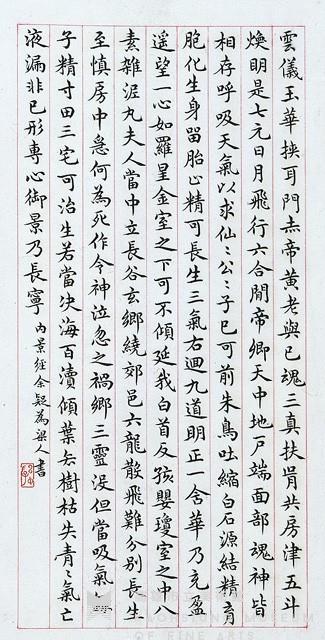 雲儀玉華挾耳門赤帝黃老與己魂三真扶胥共房津五斗
煥明是七元日月飛行六合間帝卿天中地戶端面部魂神皆
相存呼吸天氣以求仙〻公〻子已可前朱鳥吐縮白石源結精育
胞化生身留胎止精可長生三氣右迴九道明正一含華乃充盈
遙望一心如羅星金室之下可不傾延我白首反孩嬰瓊室之中八
素雜泥丸夫人當中立長谷玄鄉繞郊邑六龍散飛難分別長生
至慎房中急何為死作令神泣忽之禍鄉三靈沒但當吸氣
子精寸田三宅可治生若當決海百瀆傾葉去樹枯失青〻氣亡
液漏非己形專心御景乃長寧
內景經余疑為梁人書
OF FINE ARTS